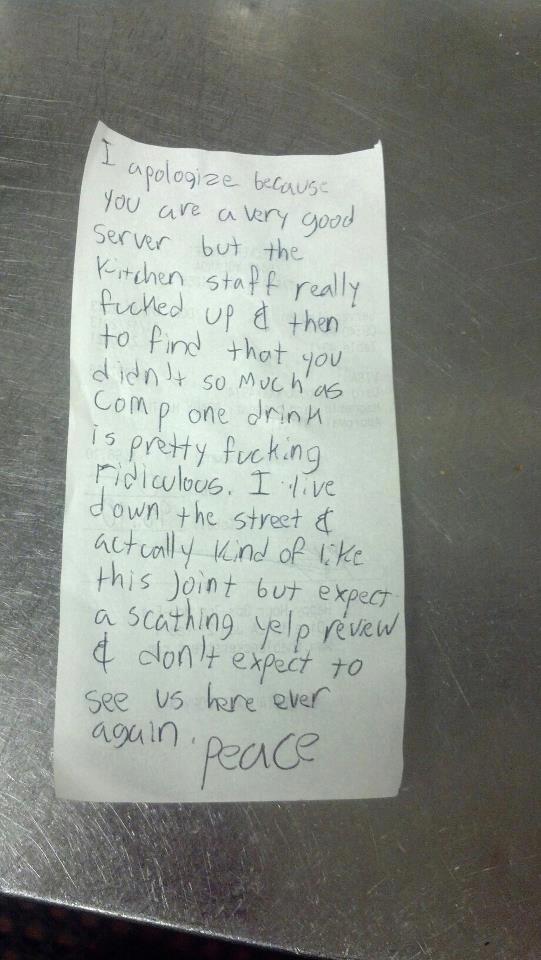 I apologize because
you are a very good
server but the
kitchen staff really
fucked up & then
to find that you
didn't so much as
comp one drink
is pretty fucking
ridiculous. I live
down the street &
actcally kind of like
this joint but expect
a scathing yelp revew
& don't expect to
see us here ever
again. peace